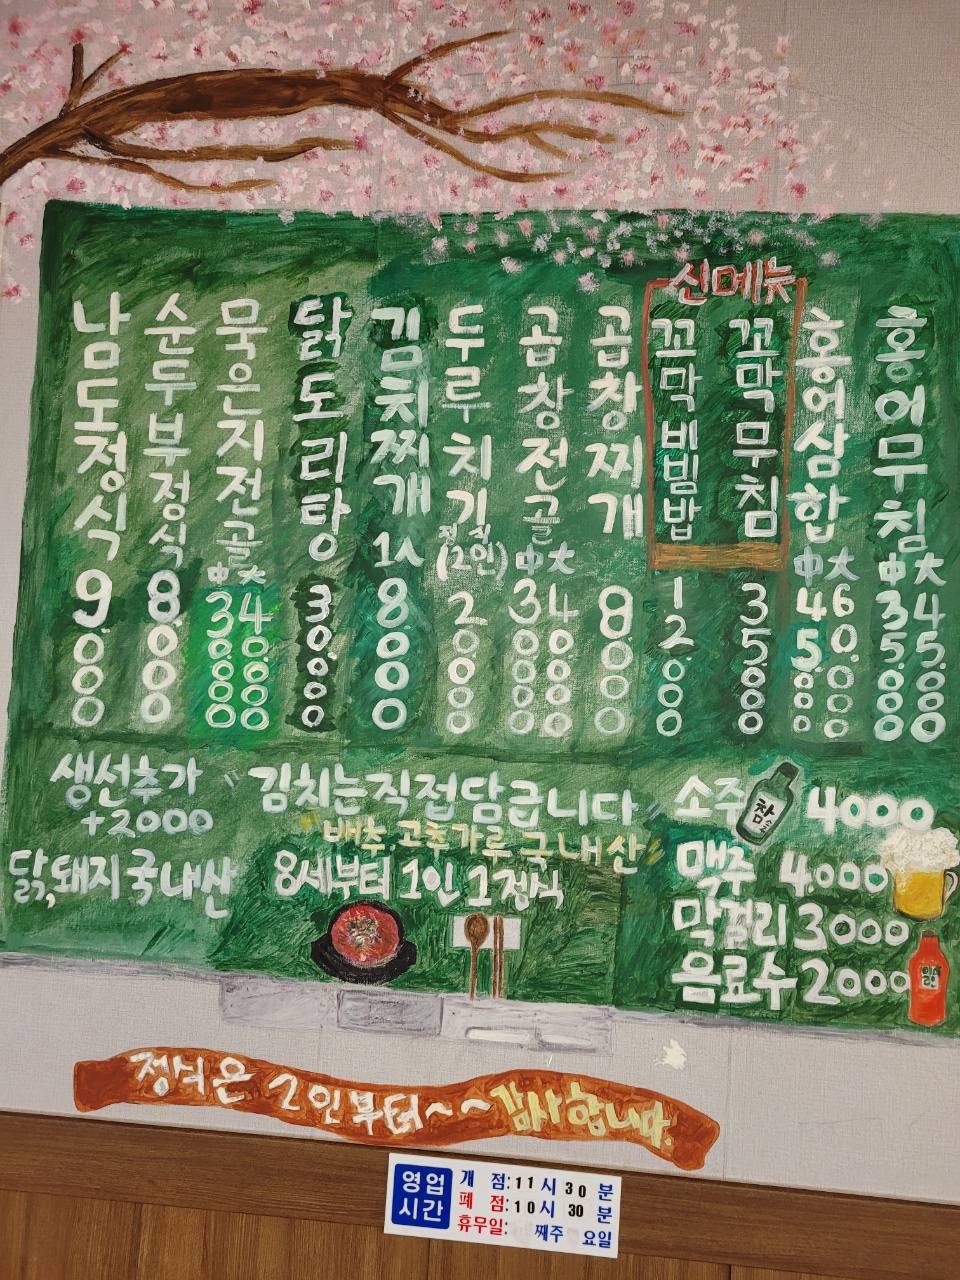 신메뉴
남도정식 9000
순두부정식 8.000
묵은지전골 中 30.000 大 40.000
닭도리탕 30.000
김치찌개 1人 8000
두루치기 정식 (2인) 20000
곱창전골 中 30000 大 40000
곱창찌개 8.000
꼬막비빔밥 12000
꼬막무침 35.000
홍어삼합 中 45.000 大 60.000
홍어무침 中 35.000 大 45.000
생선추가
+2000
닭,돼지 국내산
"김치는 직접 담급니다"
"배추.고추가루 국내산"
8세부터 1인 1정식
소주 참 4000
맥주 4.000
막걸리 3000
음료수 2000
정식은 2인부터~~감사합니다.
영업시간
개 점: 11시 30분
폐 점: 10시 30분
휴무일: 째주 요일